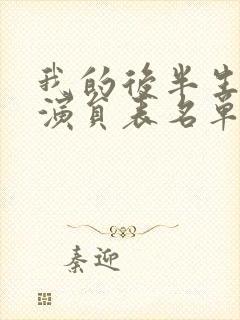 我的后半生
演員表名单
秦迎